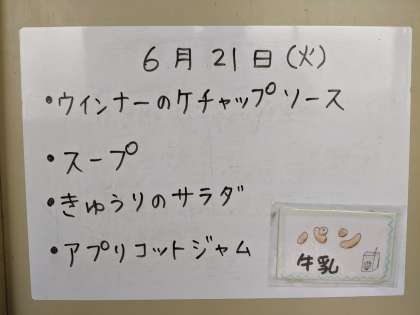 6月21日(火)
・ウインナーのケチャップソース
・スープ
・きゅうりのサラダ
・アプリコットジャム
パン
牛乳